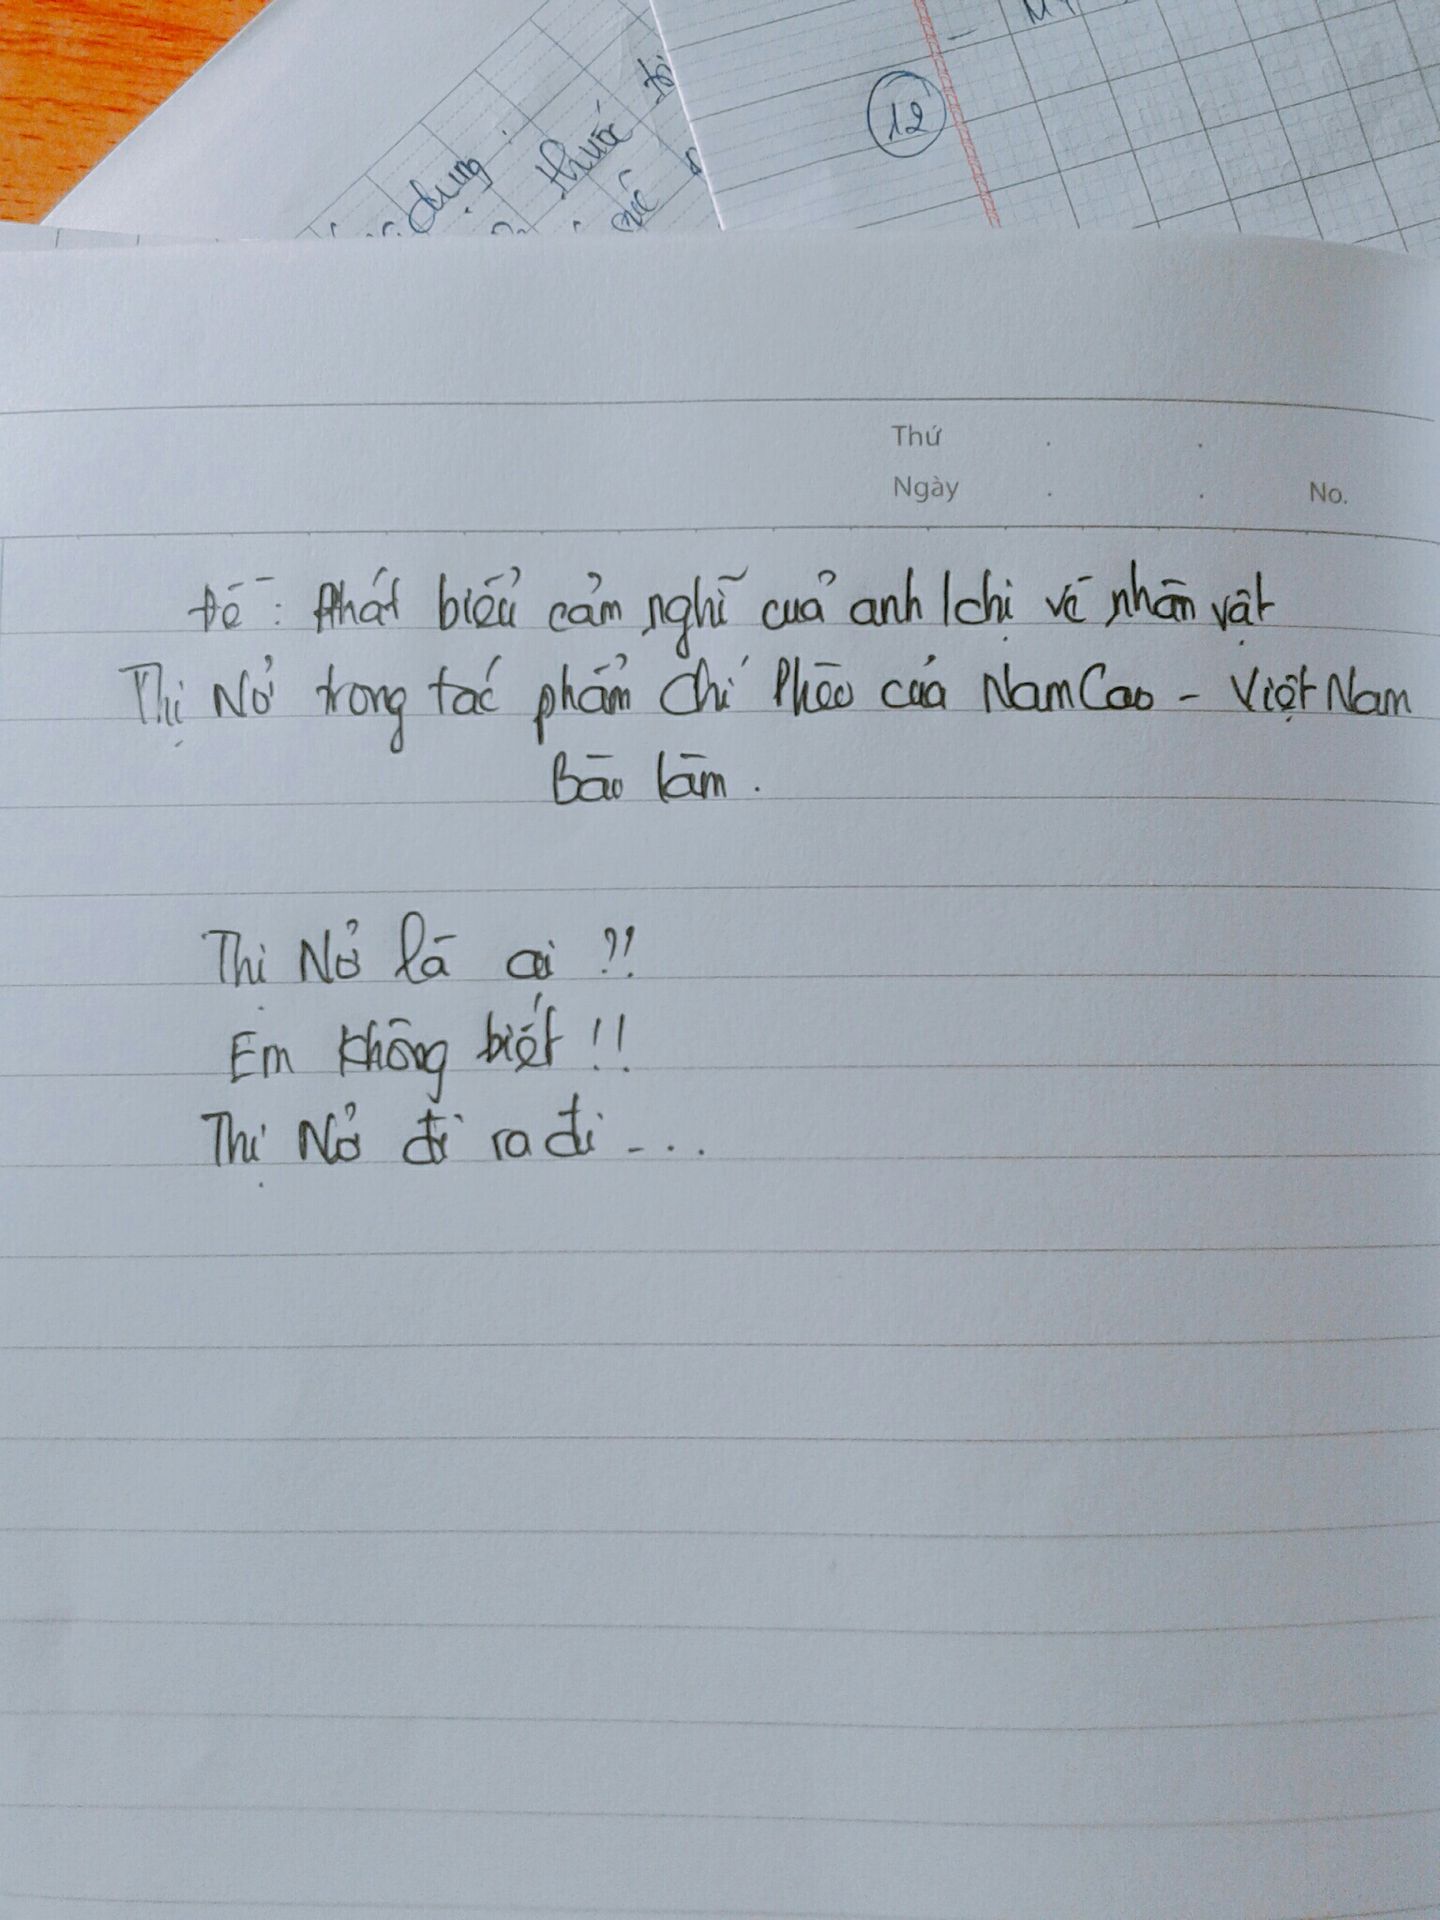 dung
thuốc
12
Thứ
Ngày
No.
Đề: Phát biểu cảm nghĩ của anh/chị về nhân vật
Thị Nở trong tác phẩm Chí Phèo của Nam Cao - Việt Nam
Bào làm.
Thị Nở là ai ?!!
Em không biết!!
Thị Nở đi ra đi -...